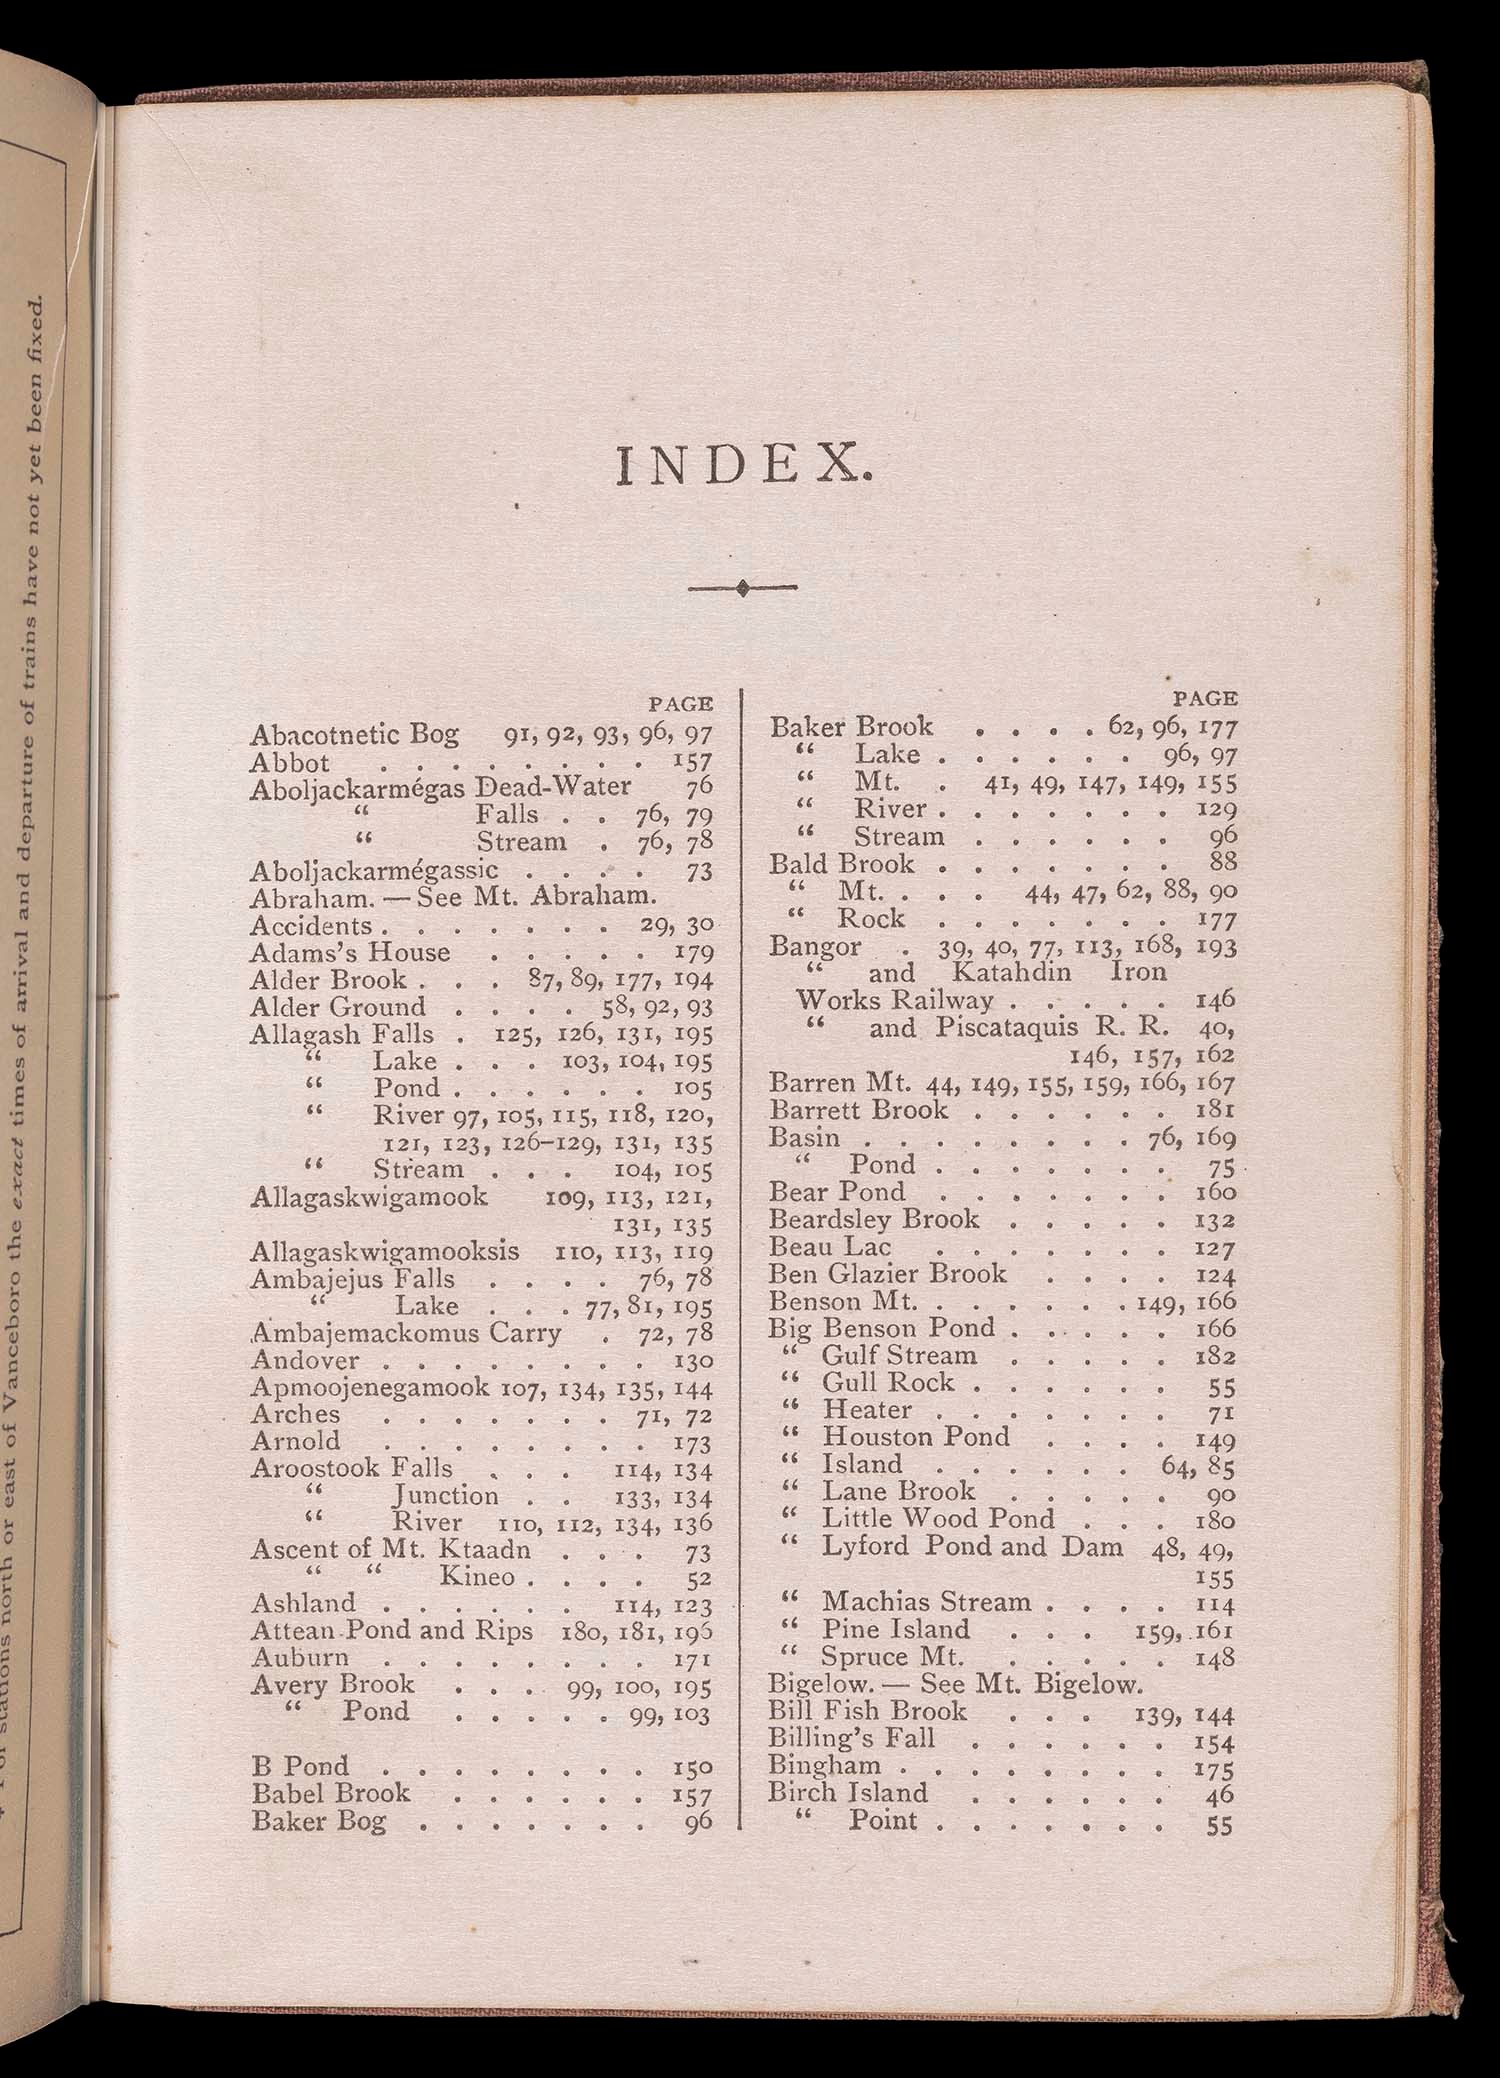 For stations north or east of Vanceboro the exact times of arrival and departure of trains have not yet been fixed.
INDEX.
PAGE
Abacotnetic Bog 91, 92, 93, 96, 97
Abbot . . . . . . . . 157
Aboljackarmégas Dead-Water 76
“ Falls . . 76, 79
“ Stream . 76, 78
Aboljackarmégassic . . . . 73
Abraham. — See Mt. Abraham.
Accidents . . . . . . . 29, 30
Adams's House . . . . . 179
Alder Brook . . . 87, 89, 177, 194
Alder Ground . . . . 58, 92, 93
Allagash Falls . 125, 126, 131, 195
“ Lake . . . 103, 104, 195
“ Pond . . . . . . 105
“ River 97, 105, 115, 118, 120,
121, 123, 126–129, 131, 135
“ Stream . . . 104, 105
Allagaskwigamook 109, 113, 121,
131, 135
Allagaskwigamooksis 110, 113, 119
Ambajejus Falls . . . . 76, 78
“ Lake . . . 77, 81, 195
Ambajemackomus Carry . 72, 78
Andover . . . . . . . . 130
Apmoojenegamook 107, 134, 135, 144
Arches . . . . . . . 71, 72
Arnold . . . . . . . . 173
Aroostook Falls . . . 114, 134
“ Junction . . 133, 134
“ River 110, 112, 134, 136
Ascent of Mt. Ktaadn . . . 73
“ “ Kineo . . . . 52
Ashland . . . . . . 114, 123
Attean Pond and Rips 180, 181, 196
Auburn . . . . . . . . 171
Avery Brook . . . 99, 100, 195
“ Pond . . . . . 99, 103
B Pond . . . . . . . . 150
Babel Brook . . . . . . 157
Baker Bog . . . . . . . 96
PAGE
Baker Brook . . . . 62, 96, 177
“ Lake . . . . . . 96, 97
“ Mt. . 41, 49, 147, 149, 155
“ River . . . . . . . 129
“ Stream . . . . . . 96
Bald Brook . . . . . . . 88
“ Mt. . . . 44, 47, 62, 88, 90
“ Rock . . . . . . . 177
Bangor . 39, 40, 77, 113, 168, 193
“ and Katahdin Iron
Works Railway . . . . . 146
“ and Piscataquis R. R. 40,
146, 157, 162
Barren Mt. 44, 149, 155, 159, 166, 167
Barrett Brook . . . . . . 181
Basin . . . . . . . . 76, 169
“ Pond . . . . . . . 75
Bear Pond . . . . . . . 160
Beardsley Brook . . . . . 132
Beau Lac . . . . . . . 127
Ben Glazier Brook . . . . 124
Benson Mt. . . . . . . 149, 166
Big Benson Pond . . . . . 166
“ Gulf Stream . . . . . 182
“ Gull Rock . . . . . . 55
“ Heater . . . . . . . 71
“ Houston Pond . . . . 149
“ Island . . . . . . 64, 85
“ Lane Brook . . . . . 90
“ Little Wood Pond . . . 180
“ Lyford Pond and Dam 48, 49,
155
“ Machias Stream . . . . 114
“ Pine Island . . . 159, 161
“ Spruce Mt. . . . . . 148
Bigelow. — See Mt. Bigelow.
Bill Fish Brook . . . 139, 144
Billing's Fall . . . . . . 154
Bingham . . . . . . . . 175
Birch Island . . . . . . 46
“ Point . . . . . . . 55